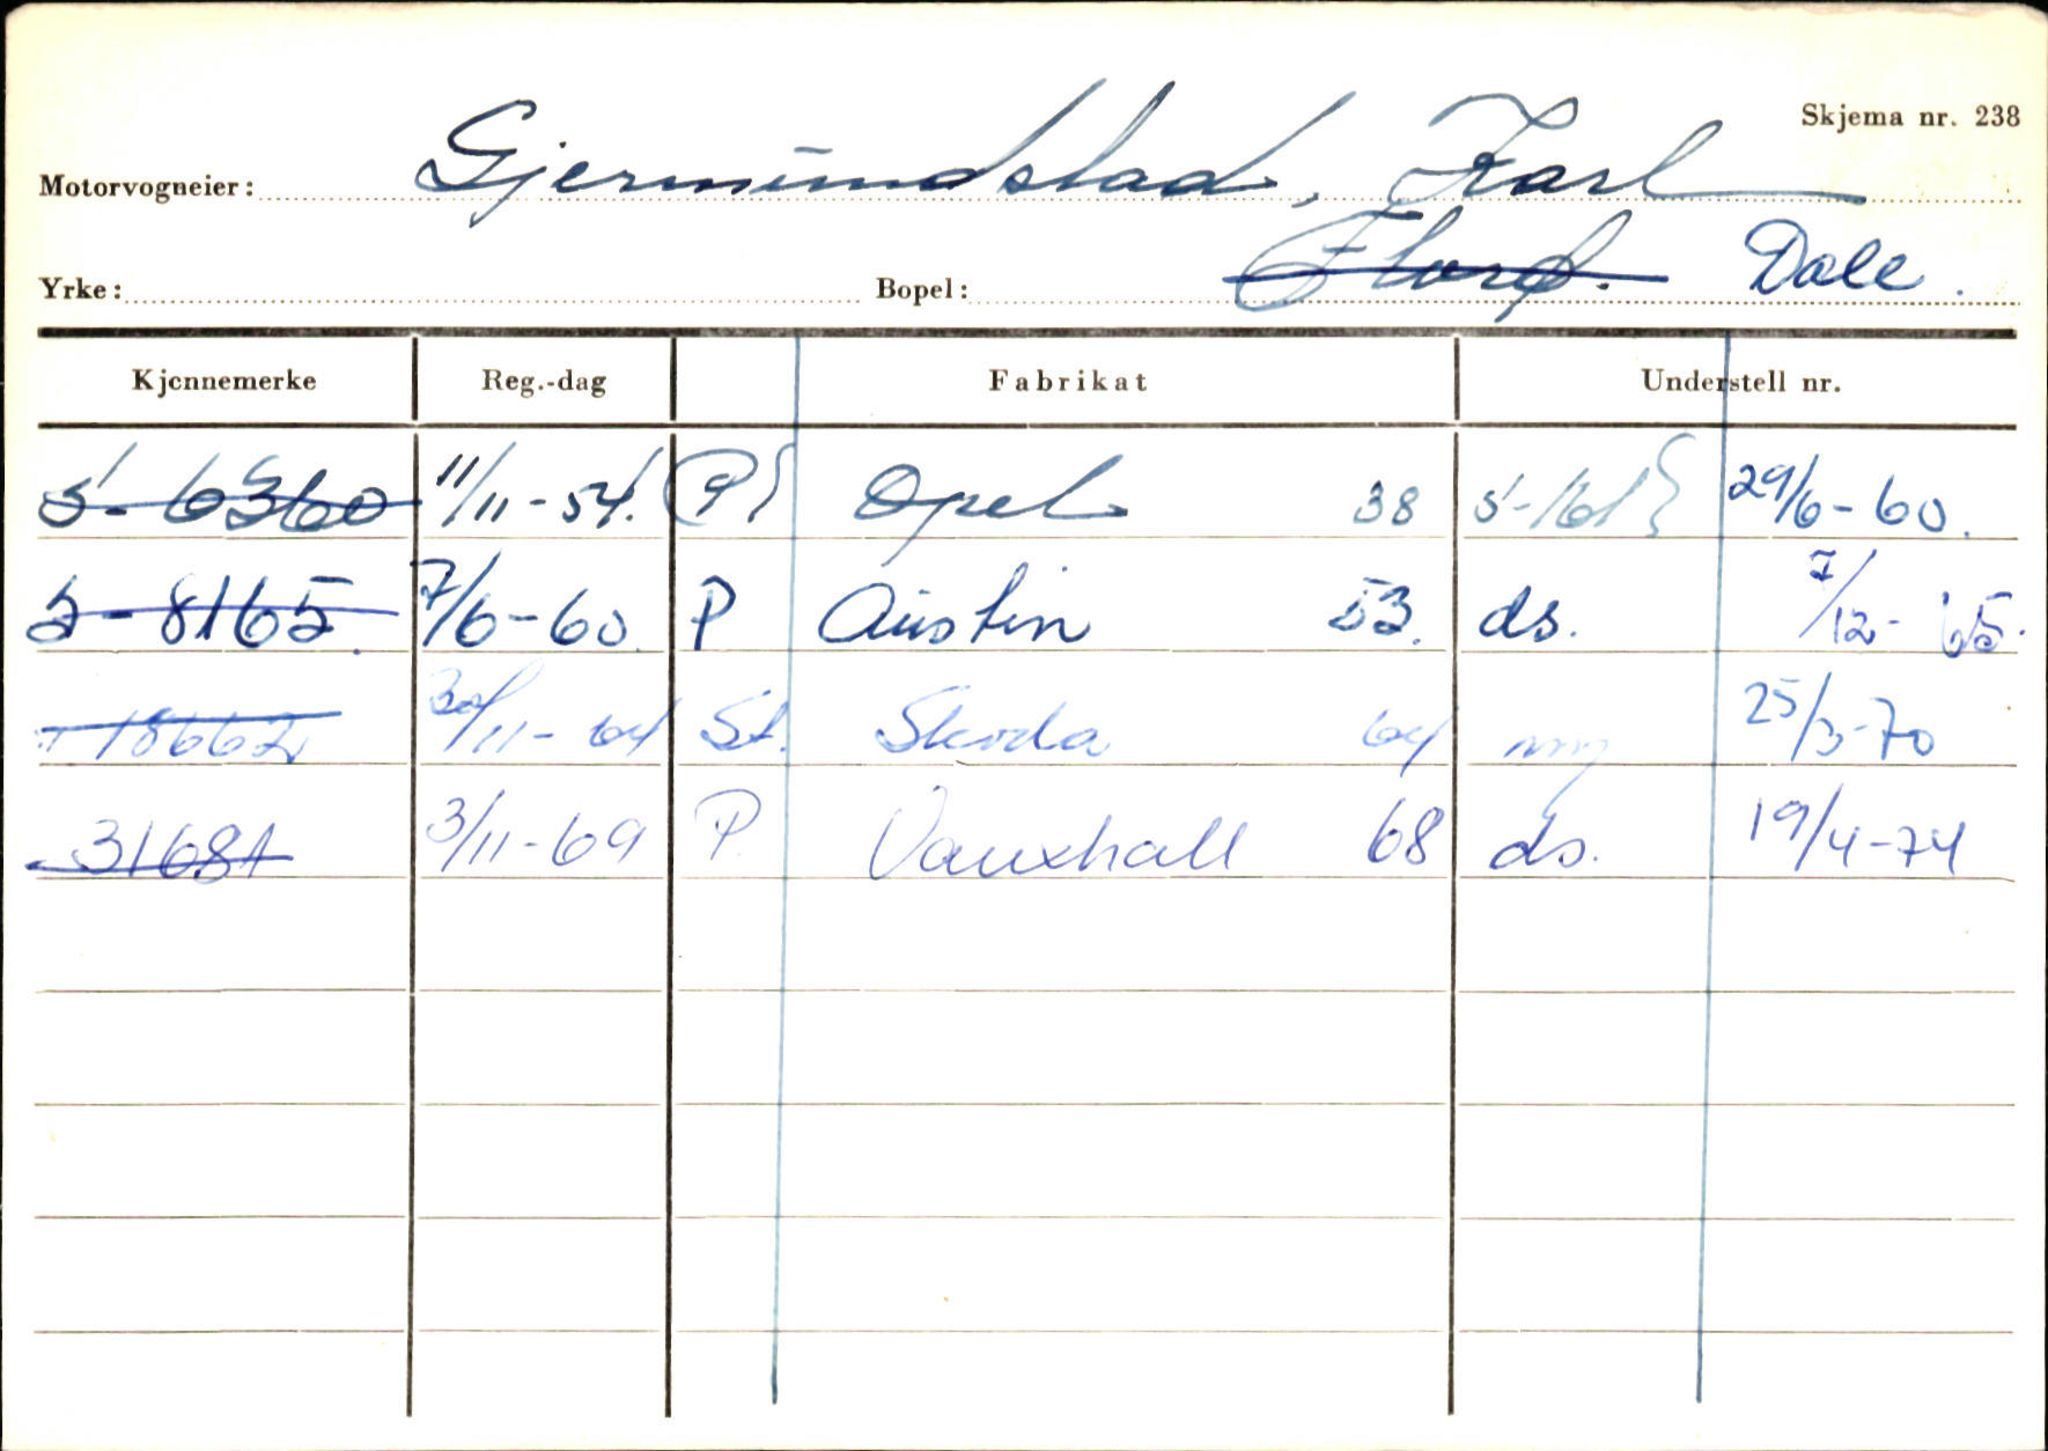 Skjema nr. 238
Motorvogneier: Gjermundstad, Karl
Yrke: Bopel: Florø. Dale.
Kjennemerke Reg.-dag Fabrikat Understell nr.
S-6360 11/11-54. (P) Opel 38 S-161 29/6-60.
S-8165. 7/6-60. P Austin 53. ds. 7/12-65.
18662 30/11-64 St. Skoda 64 ny 25/3-70
31681 3/11-69 P. Vauxhall 68 ds. 19/4-74